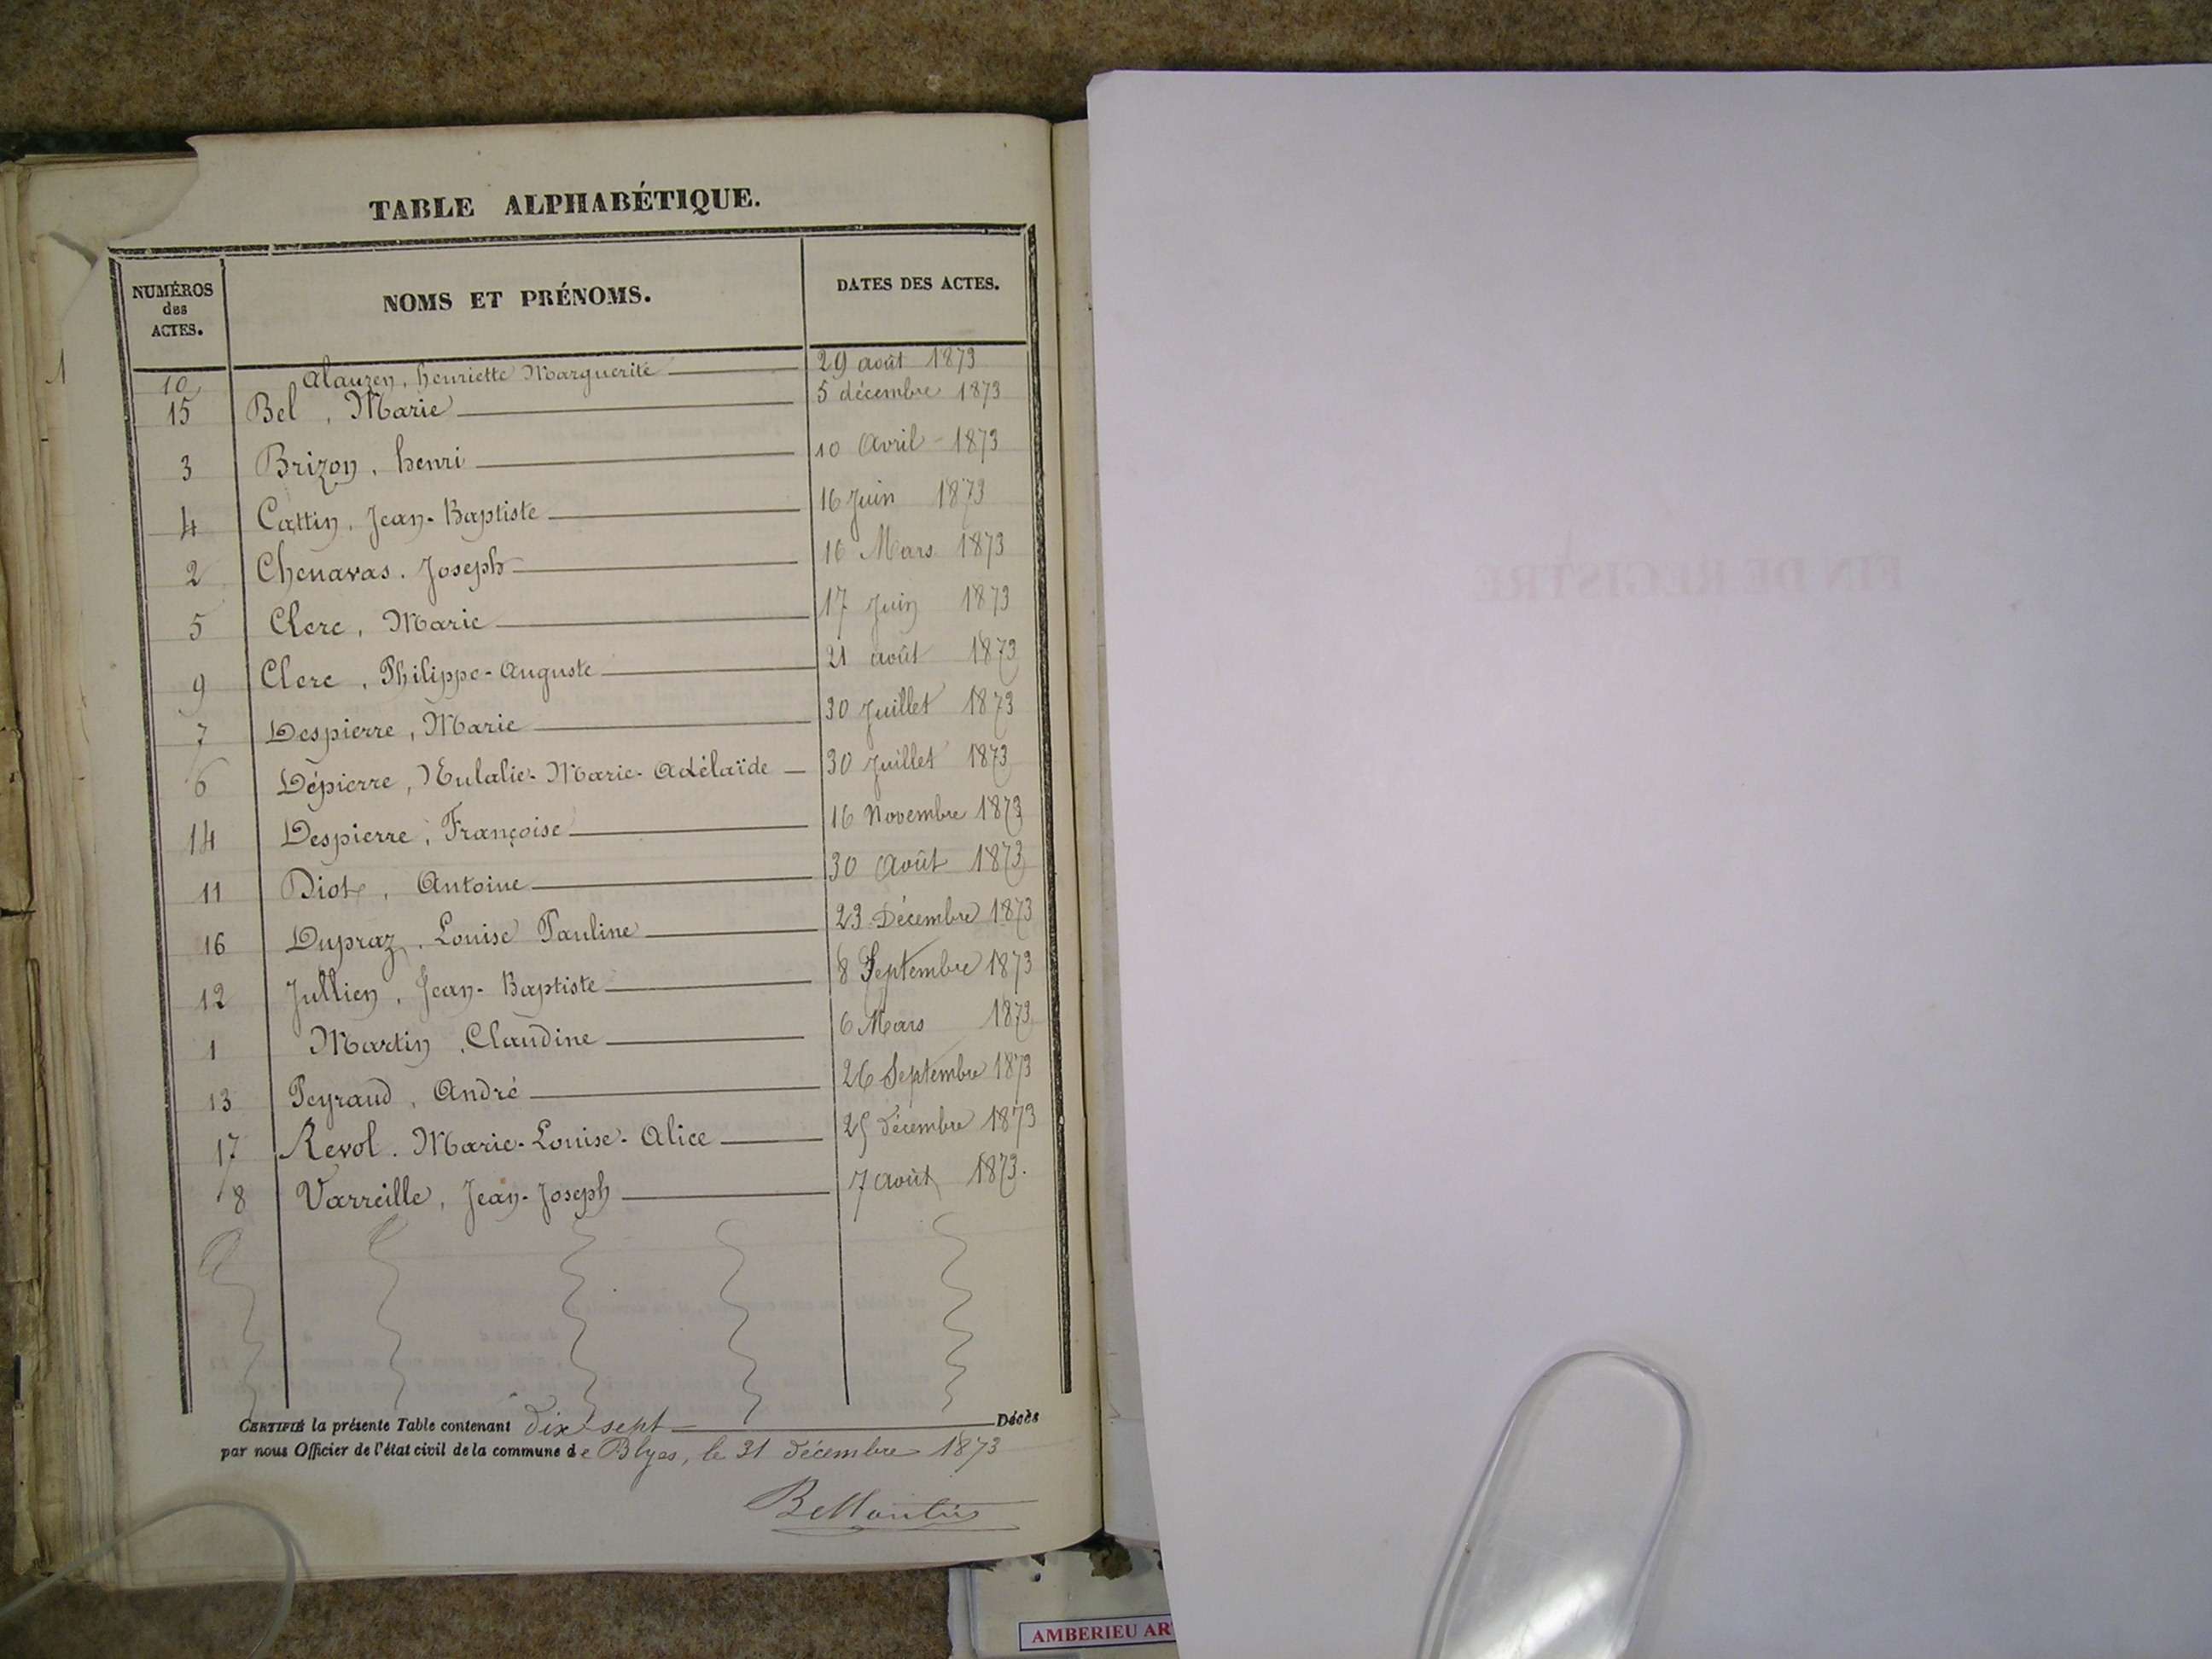 TABLE ALPHABÉTIQUE.
NUMÉROS des ACTES. NOMS ET PRÉNOMS. DATES DES ACTES.
10 Alauzen, henriette Marguerite 29 août 1873
15 Bel, Marie 5 décembre 1873
3 Brizon, henri 10 Avril 1873
4 Cattin, Jean-Baptiste 16 Juin 1873
2 Chenavas. Joseph 16 Mars 1873
5 Clerc, Marie 17 Juin 1873
9 Clerc, Philippe-Auguste 21 août 1873
7 Despierre, Marie 30 Juillet 1873
6 Dépierre, Eulalie-Marie-Adélaïde 30 Juillet 1873
14 Despierre, Françoise 16 Novembre 1873
11 Diot, Antoine 30 Août 1873
16 Dupraz, Louise Pauline 23 Décembre 1873
12 Jullien, Jean-Baptiste 8 Septembre 1873
1 Martin, Claudine 6 Mars 1873
13 Peyraud, André 26 Septembre 1873
17 Revol. Marie-Louise-Alice 25 décembre 1873
8 Varreille, Jean-Joseph 7 août 1873.
CERTIFIÉ la présente Table contenant dix-sept Décès
par nous Officier de l'état civil de la commune de Blyes, le 31 décembre 1873
FIN DE REGISTRE
AMBERIEU AR